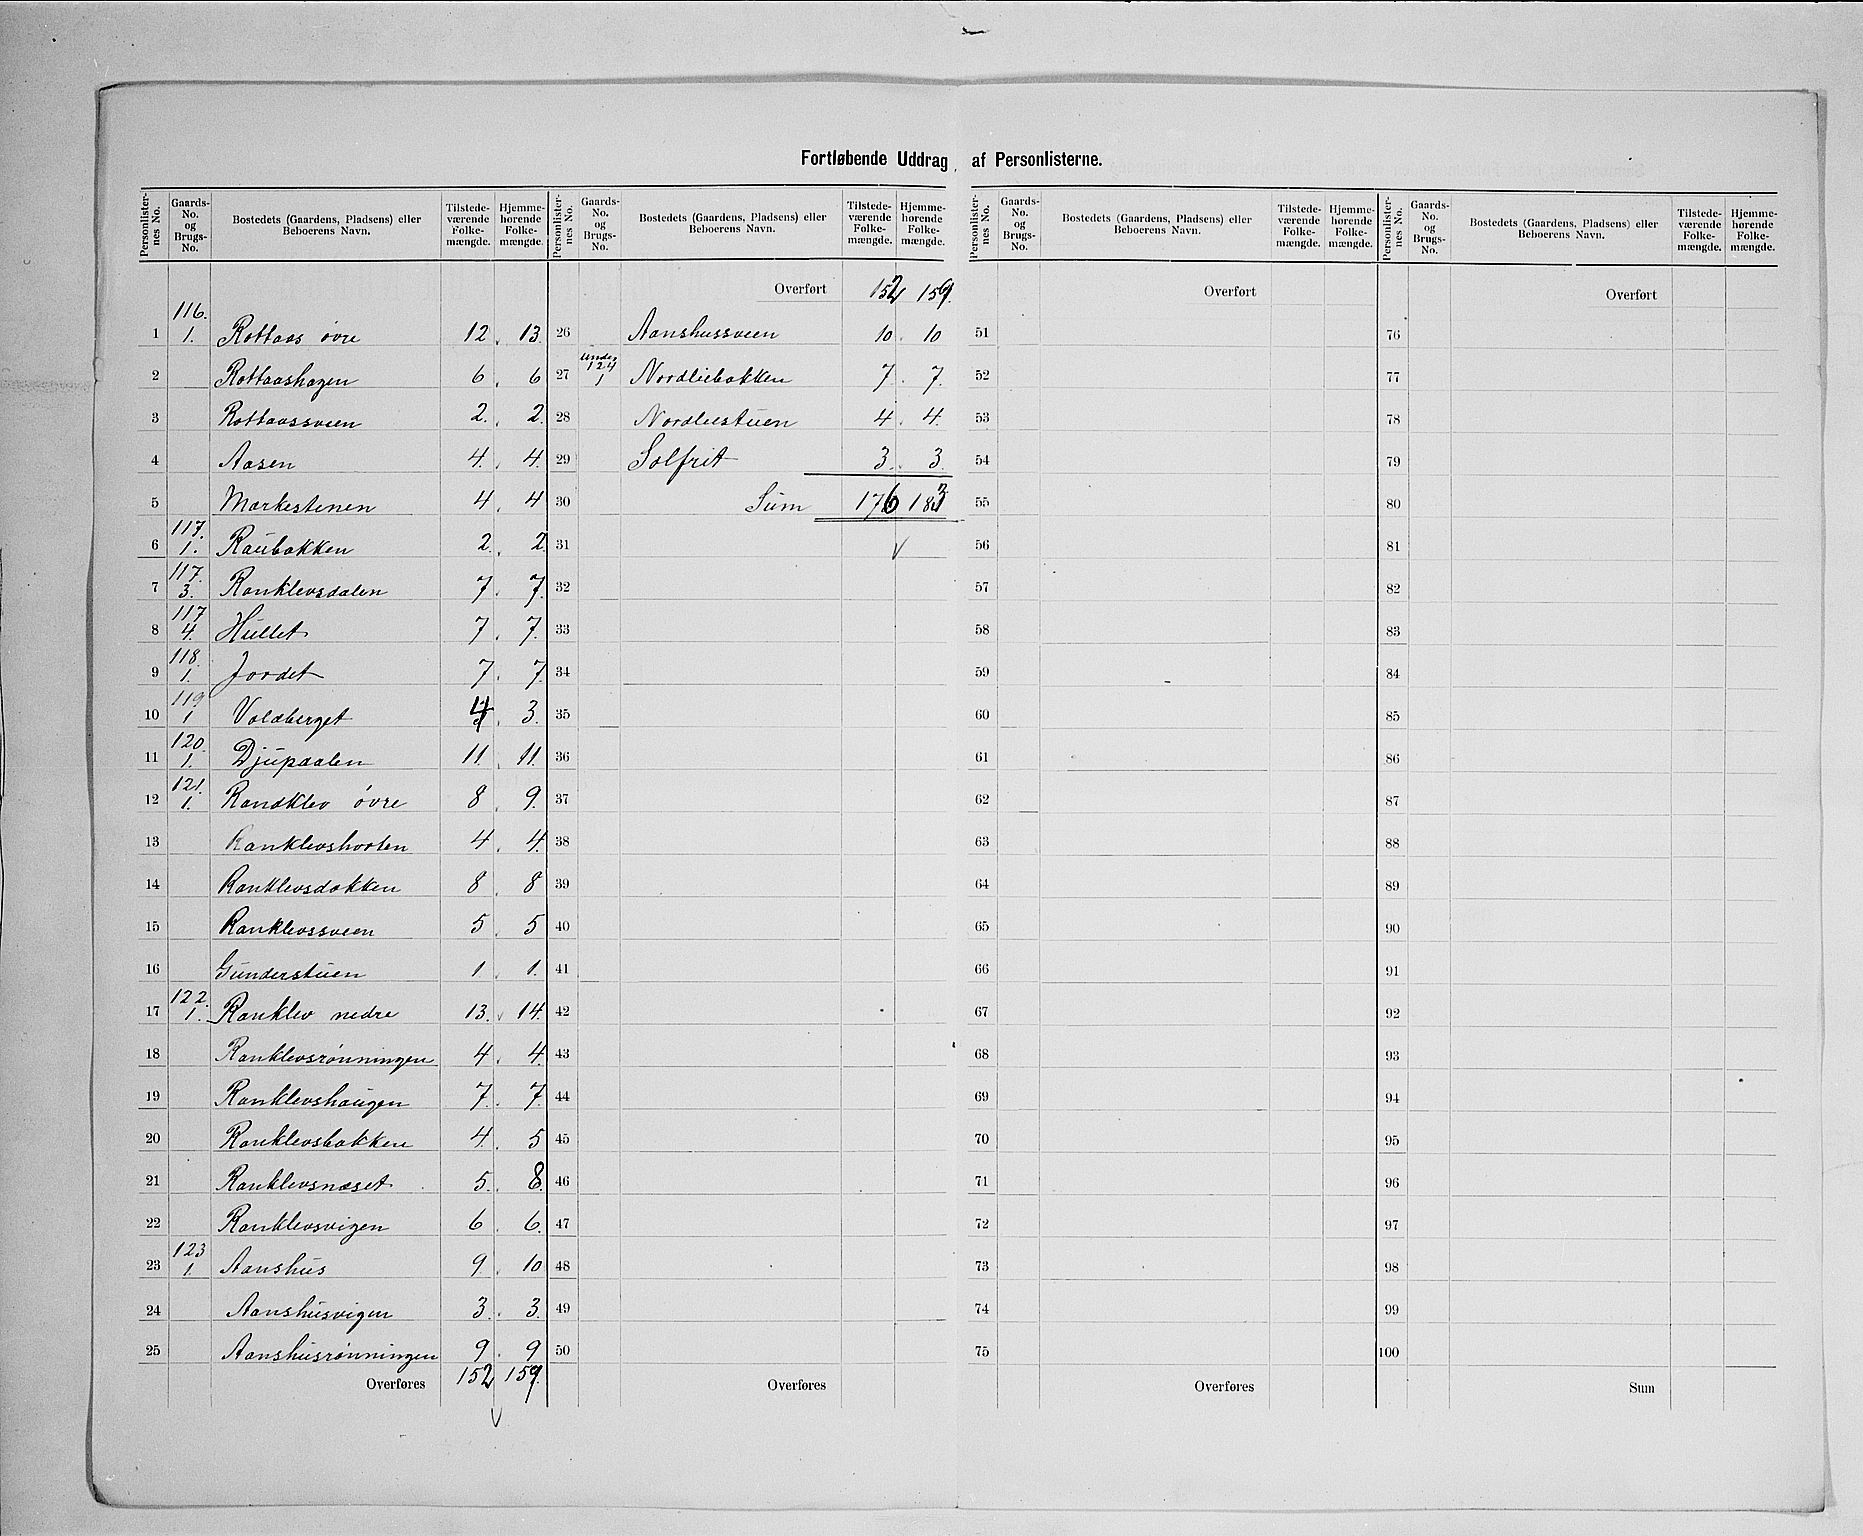 Fortløbende Uddrag af Personlisterne.
Personlisternes No. Gaards-No. og Brugs-No. Bostedets (Gaardens, Pladsens) eller Beboerens Navn. Tilstedeværende Folkemængde. Hjemmehørende Folkemængde.
1 116. 1. Rottaas øvre 12. 13.
2 Rottaashagen 6. 6
3 Rottaassveen 2. 2.
4 Aasen 4. 4.
5 Markestenen 4. 4
6 117. 1. Raubakken 2. 2.
7 117. 3. Ranklevsdalen 7. 7.
8 117 4. Hullet 7. 7.
9 118. 1. Jordet 7. 7.
10 119 1 Voldberget 4. 3.
11 120. 1. Djupdalen 11. 11.
12 121. 1. Randklev øvre 8. 9.
13 Ranklevshorten 4. 4.
14 Ranklevsdokken 8. 8
15 Ranklevssveen 5. 5
16 Gunderstuen 1. 1.
17 122. 1. Ranklev nedre 13. 14.
18 Ranklevsrønningen 4. 4.
19 Ranklevshaugen 7. 7.
20 Ranklevsbakken 4. 5
21 Ranklevsnæset 5. 8.
22 Ranklevsvigen 6. 6.
23 123 1. Aanshus 9. 10
24 Aanshusvigen 3. 3.
25 Aanshusrønningen 9. 9
Overføres 152 159.
Personlisternes No. Gaards-No. og Brugs-No. Bostedets (Gaardens, Pladsens) eller Beboerens Navn. Tilstedeværende Folkemængde. Hjemmehørende Folkemængde.
Overført 152 159.
26 Aanshussveen 10. 10
27 under 124 1 Nordliebakken 7. 7.
28 Nordliestuen 4. 4.
29 Solfrit 3. 3.
30 Sum 176 183
31
32
33
34
35
36
37
38
39
40
41
42
43
44
45
46
47
48
49
50
Overføres
Personlisternes No. Gaards-No. og Brugs-No. Bostedets (Gaardens, Pladsens) eller Beboerens Navn. Tilstedeværende Folkemængde. Hjemmehørende Folkemængde.
Overført
51
52
53
54
55
56
57
58
59
60
61
62
63
64
65
66
67
68
69
70
71
72
73
74
75
Overføres
Personlisternes No. Gaards-No. og Brugs-No. Bostedets (Gaardens, Pladsens) eller Beboerens Navn. Tilstedeværende Folkemængde. Hjemmehørende Folkemængde.
Overført
76
77
78
79
80
81
82
83
84
85
86
87
88
89
90
91
92
93
94
95
96
97
98
99
100
Sum